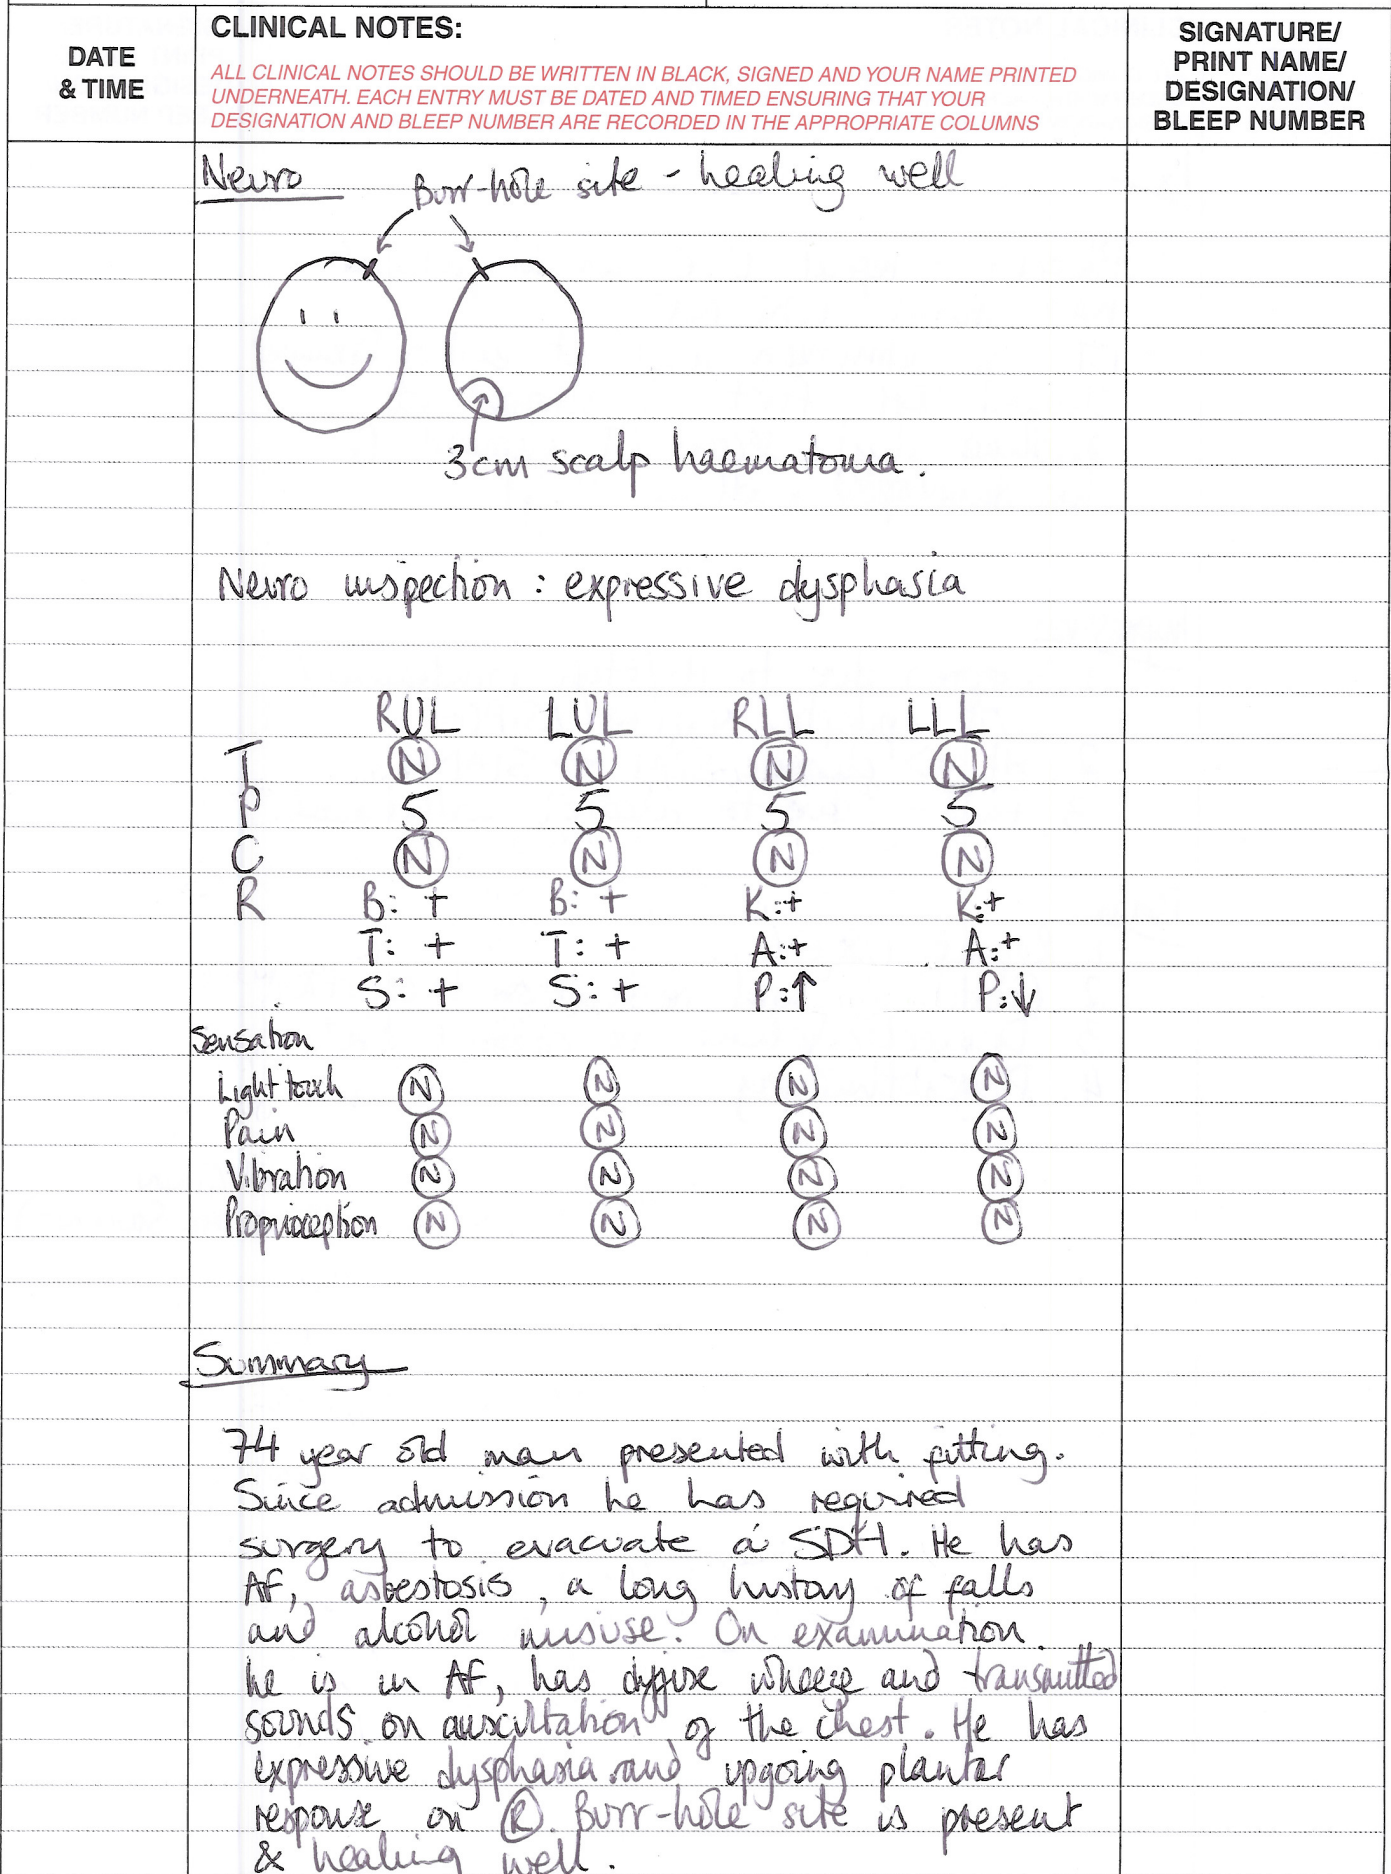 DATE & TIME
CLINICAL NOTES:
ALL CLINICAL NOTES SHOULD BE WRITTEN IN BLACK, SIGNED AND YOUR NAME PRINTED
UNDERNEATH. EACH ENTRY MUST BE DATED AND TIMED ENSURING THAT YOUR
DESIGNATION AND BLEEP NUMBER ARE RECORDED IN THE APPROPRIATE COLUMNS
SIGNATURE/
PRINT NAME/
DESIGNATION/
BLEEP NUMBER
Neuro Burr-hole site - healing well
3cm scalp haematoma.
Neuro inspection : expressive dysphasia
RUL LUL RLL LLL
T N N N N
P 5 5 5 5
C N N N N
R B: + B: + K:+ K:+
T: + T: + A:+ A:+
S: + S: + P:↑ P:↓
Sensation
Light touch N N N N
Pain N N N N
Vibration N N N N
Proprioception N N N N
Summary
74 year old man presented with fitting.
Since admission he has required
surgery to evacuate a SDH. He has
AF, asbestosis, a long history of falls
and alcohol misuse. On examination
he is in AF, has diffuse wheeze and transmitted
sounds on auscultation of the chest. He has
expressive dysphasia and upgoing plantar
response on R. Burr-hole site is present
& healing well.